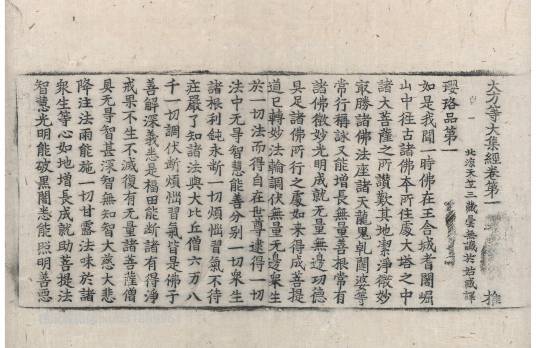 大方等大集經卷第一
北涼天竺三藏曇無讖於姑臧譯
推
瓔珞品第一
如是我聞一時佛在王舍城耆闍崛
山中往古諸佛本所住處大塔之中
諸大菩薩之所讚歎其地潔淨微妙
最勝諸佛法座諸天龍鬼乹闥婆等
常行稱詠又能增長無量善根常有
諸佛微妙光明成就无量無邊功德
具足諸佛所行之處如來得成菩提
道已轉妙法輪調伏無量無邊衆生
於一切法而得自在世尊逮得一切
法中无㝵智慧能善分別一切衆生
諸根利鈍永断一切煩惱習氣不待
莊嚴了知諸法與大比丘僧六万八
千一切調伏断煩惱習氣皆是佛子
善解深義悉是福田能断諸有得淨
戒果不生不滅復有无量諸菩薩僧
具无㝵智甚深智無知智大慈大悲
降注法雨能施一切甘露法味於諸
衆生等心如地增長成就助菩提法
智慧光明能破黒闇悉能照明善惡